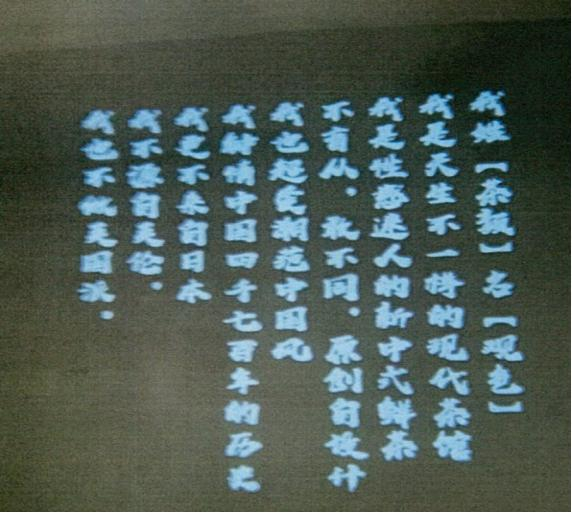 我姓【茶颜】名【观色】
我是天生不一样的现代茶馆
我是性感迷人的新中式鲜茶
不盲从。敢不同。原创自设计
我也起英潮范中国风
我钟情中国四千七百年的历史
我更不来自日本
我不源自美伦。
我也不似美国派。